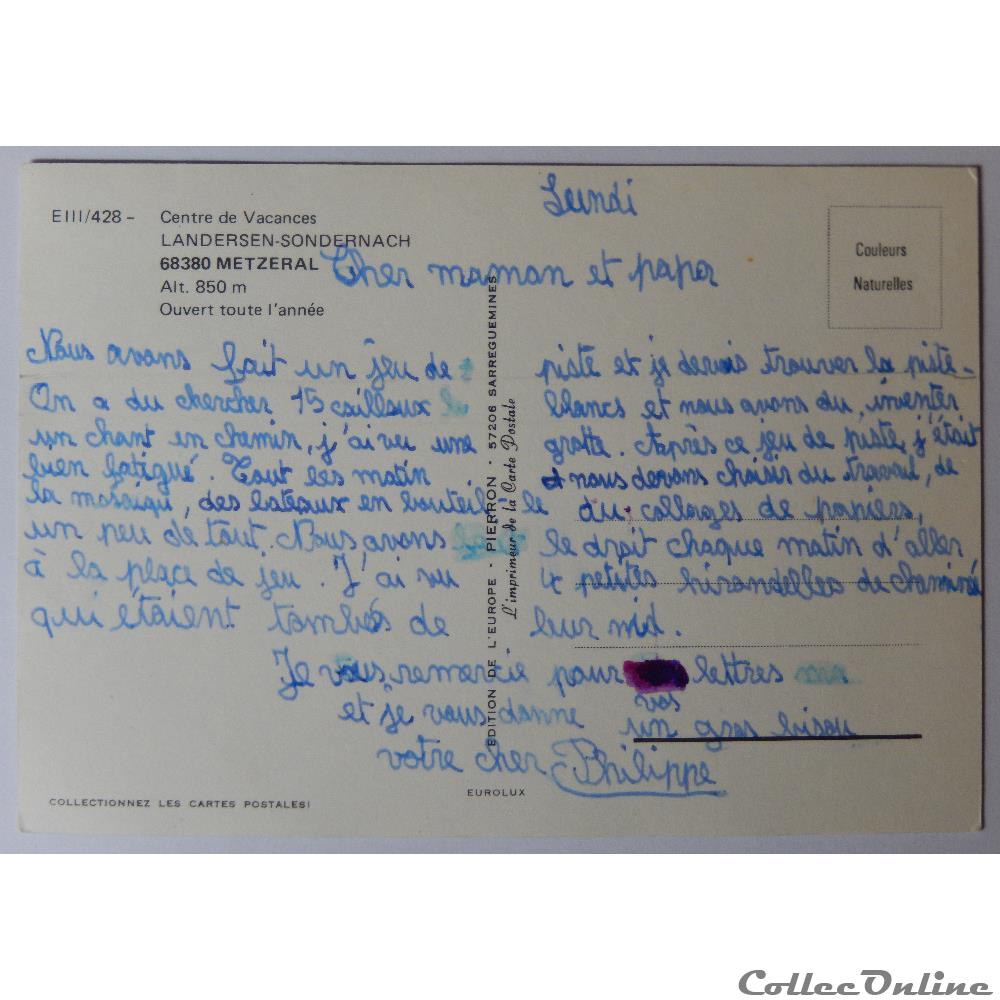 Lundi
EIII/428 - Centre de Vacances
LANDERSEN-SONDERNACH
68380 METZERAL
Alt. 850 m
Ouvert toute l'année
Couleurs
Naturelles
Cher maman et papa
Nous avons fait un jeu de piste et je devais trouver la piste-
On a du chercher 15 cailloux blancs et nous avons du, inventer
un chant en chemin, j'ai vu une grotte. Après ce jeu de piste, j'était
bien fatigué. Tout les matin nous devons choisir du travail, de
la mosaïqu, des bateaux en bouteille du collages de papiers,
un peu de tout. Nous avons le droit chaque matin d'aller
à la place de jeu. J'ai vu 4 petites hirondelles de cheminé
qui étaient tombés de leur nid.
Je vous remercie pour lettres
vos
et je vous donne un gros bisou
votre cher Philippe
EDITION DE L'EUROPE - PIERRON - 57206 SARREGUEMINES
L'imprimeur de la Carte Postale
EUROLUX
COLLECTIONNEZ LES CARTES POSTALES!
CollecOnline